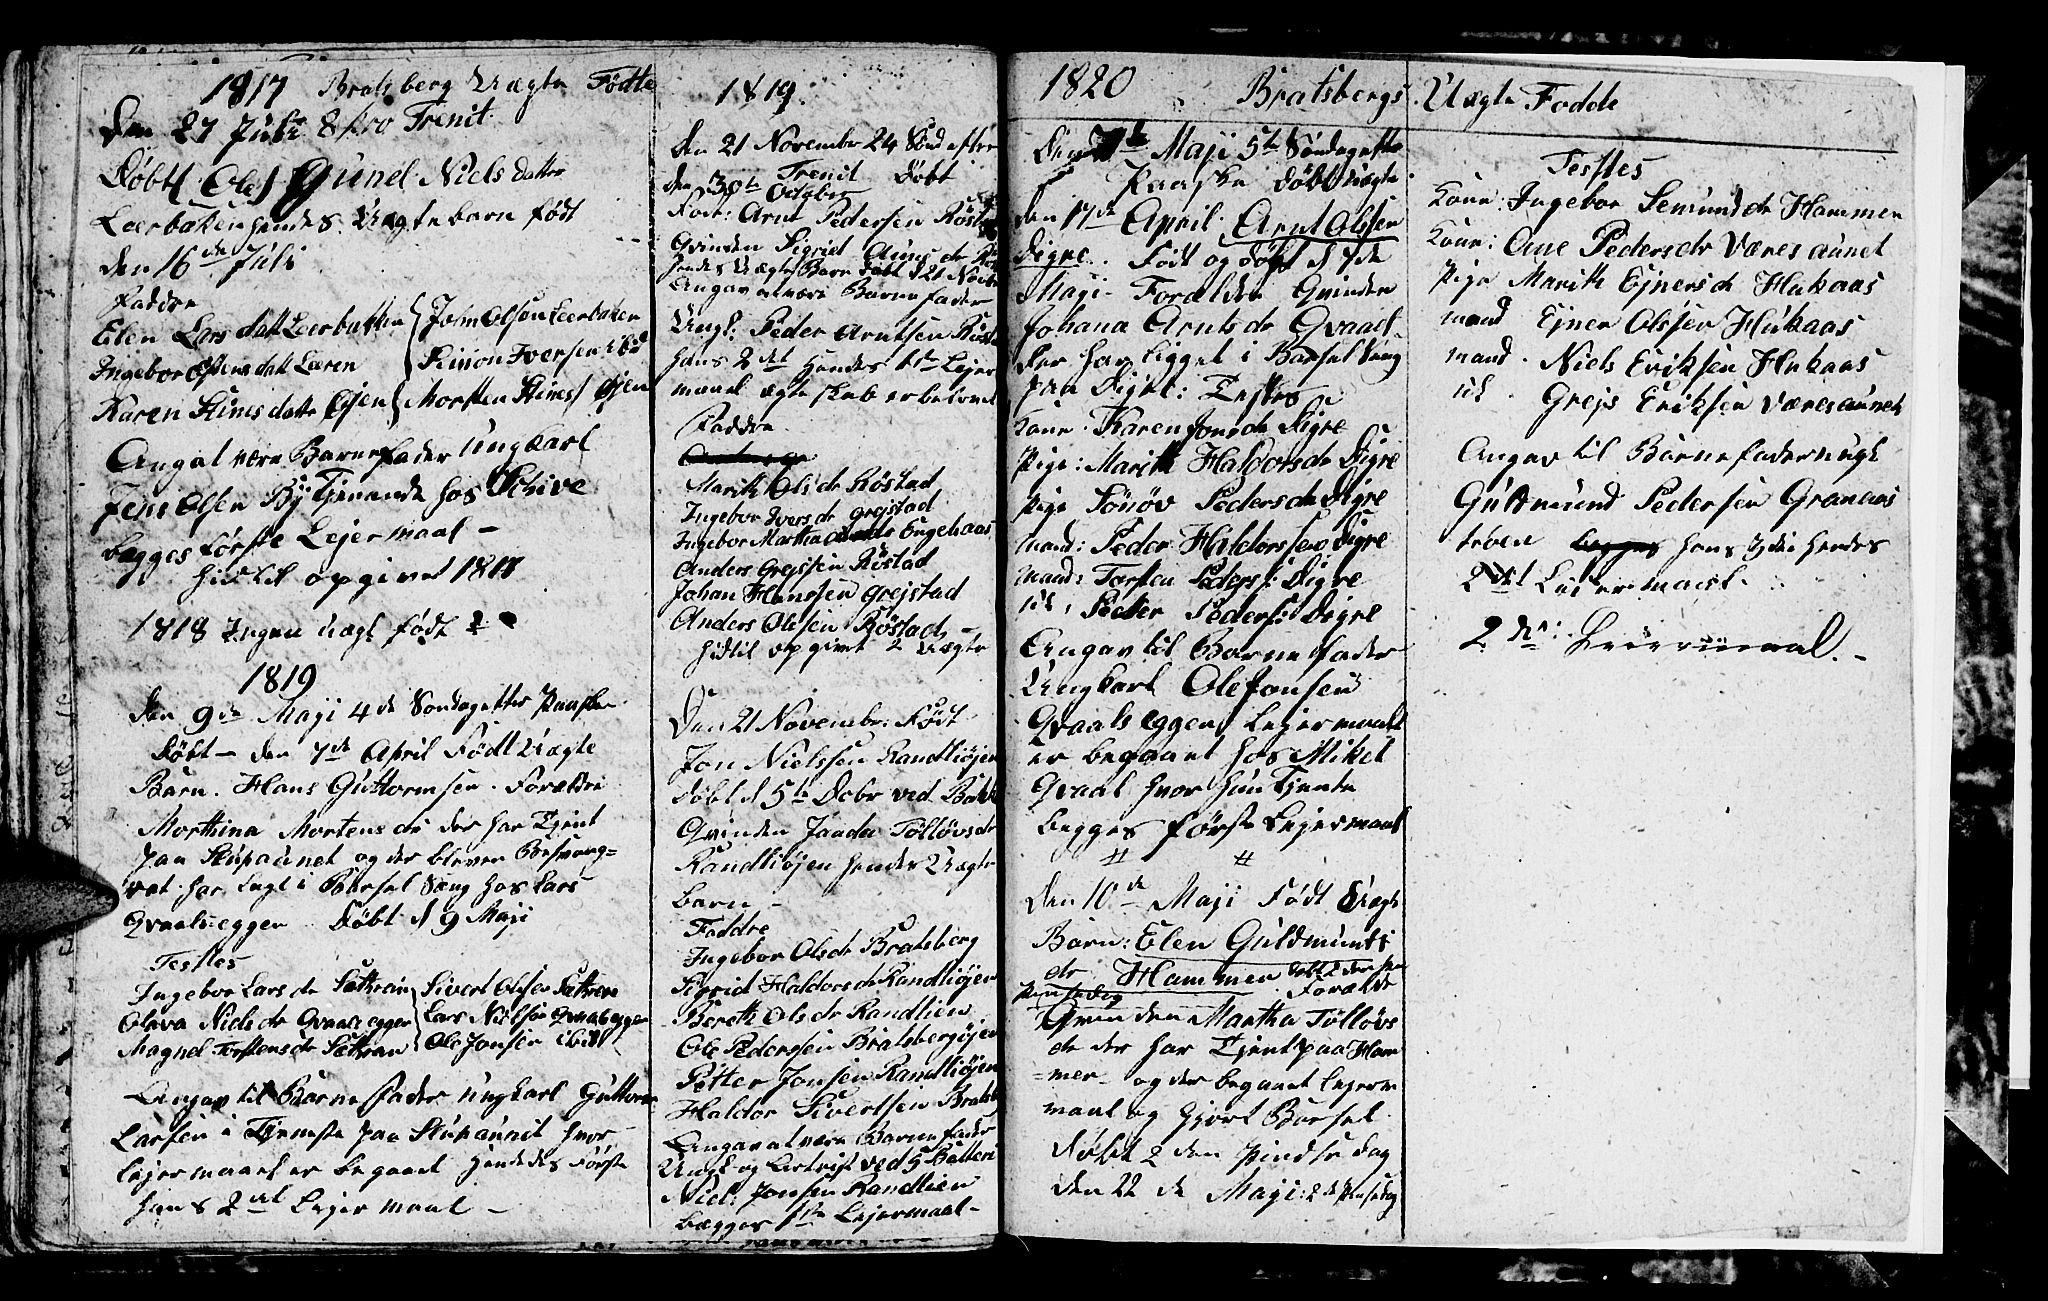 1817 Bratsberg Uægte Födte
Den 27 Julii 8 p Tre Trenit
Döbt (Ole) Gunel Niels datter
Leerbaken hendes Uægte barn födt
den 16 de Juli
Faddre
Elen Lars datt Leerbakken { John Olsön Leerbaken
Ingebor Estens datt Leeren { Simon Iversen ibid
Karen Stines datter Öjen { Morsten Stines Öjen
Angat være Barnefader Ungkarl
Jens Olsen By Tjenende hos Schive
begges förste Lejermaal –
hidtil opgivet 1818
1818 Ingen uægt födt
1819
den 9 de Maji 4 de Söndag etter Paaske
Döbt – den 7 de April Födt Uægte
Barn. Hans Guttormsen. Forældre
Morthina Mortens dr der har Tjent
paa Stupaunet og der bleven Besvang=
ret har Lagt i Barsel Sæng hos Lars
Qvaalseggen Döbt d 9 Maji
Testes
Ingebor Lars dr Sætran { Sivert Olsen Sætren
Olava Niels dr Qvaalseggen { Lars Nielsen Qvaalseggen
Magnel Torstens dr Sætran { Ole Jonsen ibid
Angav til Barnefader ungkarl Guttorm
Larsen i Tjeneste paa Stupaunet hvor
lejermaalet er begaaet Hendes Förste
hans 2 det Lejermaal –
1819
Den 21 November 24 Sönd efter
Trenit Döbt
den 30te October
Född: Arnt Pedersen Röstad
Qvinden Sigrid Aunes dr
hendes Uægte Barn Döbt d 21 Nov
Angav at være Barnefader
Ungk: Peder Arntsen Röstad
hans 2 det Hendes 1 ste Lejer
maal ægteskab erbelovet
Faddre
Marith Ols dr Röstad
Ingebor Ivers dr Grejstad
Ingebor Martha dr Engelsaas
Anders Grejssen Röstad
Johan Hanssen Grejstad
Anders Olssen Röstad –
hidtil opgivet 2 Uægte
Den 21 November Födt
Jon Nielssen Randliöjen
döbt d 5 te Decbr ved Bakke
Qvinden Jaada Tölløvs dr
Randliöjen hendes Uægte
barn –
Faddre
Ingebor Ols dr Bratsberg
Sigrid Haldors dr Randliöjen
Bereth Ols dr Randlien
Ole Pederssen Bratsbergöjen
Petter Jonsen Randliöjen
Haldor Sivertsen Bratsb
Angav at være Barnefader
Ungk og Artrist ved 5 Batteri
Niels Jonsen Randlien
begges 1 ste Lejermaal –
1820 Bratsbergs Uægte Fodde
Den 7 de Maji 5 te Söndag efter
Paaske döbt Uægte
den 17 de April Arnt Olssen
Digre. Födt og döbt d 7 de
Maji – Forældre Qvinden
Johana Arnts dr Qvaal
der har ligget i Barsel Sæng
paa Digre: Testes
Kone Karen Jons dr Digre
Pige: Marith Haldors dr Digre
Pige Sönöv Peders dr Digre
Mand: Peder Haldorssen Digre
Mand: Torsten Peders: Digre
uk, Peder Peders: Digre
Angav til Barnefader
Ungkarl Ole Jonsen
Qvaalseggen Lejermaalet
er begaaet hos Mikel
Qvaal hvor hun Tjente
begges förste Lejermaal
# #
Den 10 de Maji Födt Uægte
Barn: Elen Guldmunts
dr Hammen döbt 2 den
Pinsedag Forældre
Qvinden Martha Tölløvs
dr der har Tjent paa Ham
=mer – og der begaaet lejerm
maal og gjort Barsel
Döbt 2 den Pindse dag
den 22 de Maji: 2 de Pinsedag
Testes
Kone: Ingebor Semund dr Hammen
Kone: Ane Peders dr Væresaunet
Pige Marith Ejners dr Hukaas
mand Ejner Olssen Hukaas
mand. Niels Eriksen Hukaas
uk. Grejs Eriksen Væresaunet
Angav til Barnefader ungk
Guldmund Pedersen Granaas
töven begges hans 3 die hendes
2 det Leiermaal.
2 den: Leiermaal. –